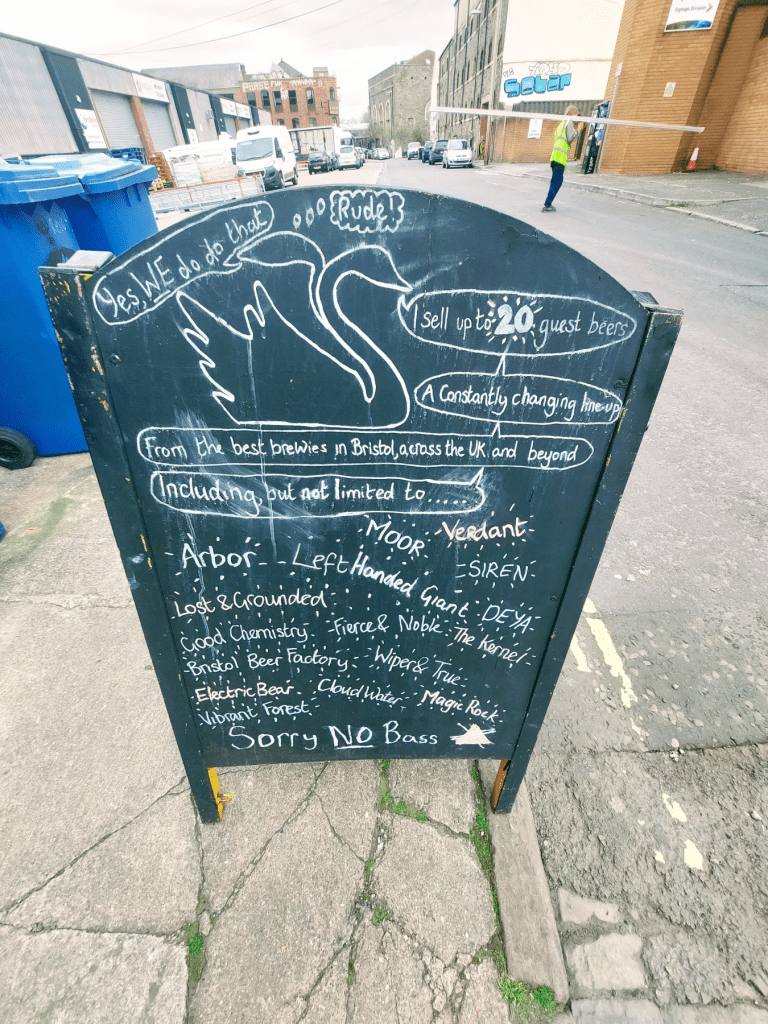 Rude!
Yes, WE do do that
I sell up to 20 guest beers
A Constantly changing line-up
From the best brewies in Bristol, across the UK and beyond
Including, but not limited to.....
MOOR Verdant
Arbor Left Handed Giant SIREN
Lost & Grounded DEYA
Good Chemistry Fierce & Noble The Kernel
Bristol Beer Factory Wiper & True
Electric Bear Cloud Water Magic Rock
Vibrant Forest
Sorry NO Bass